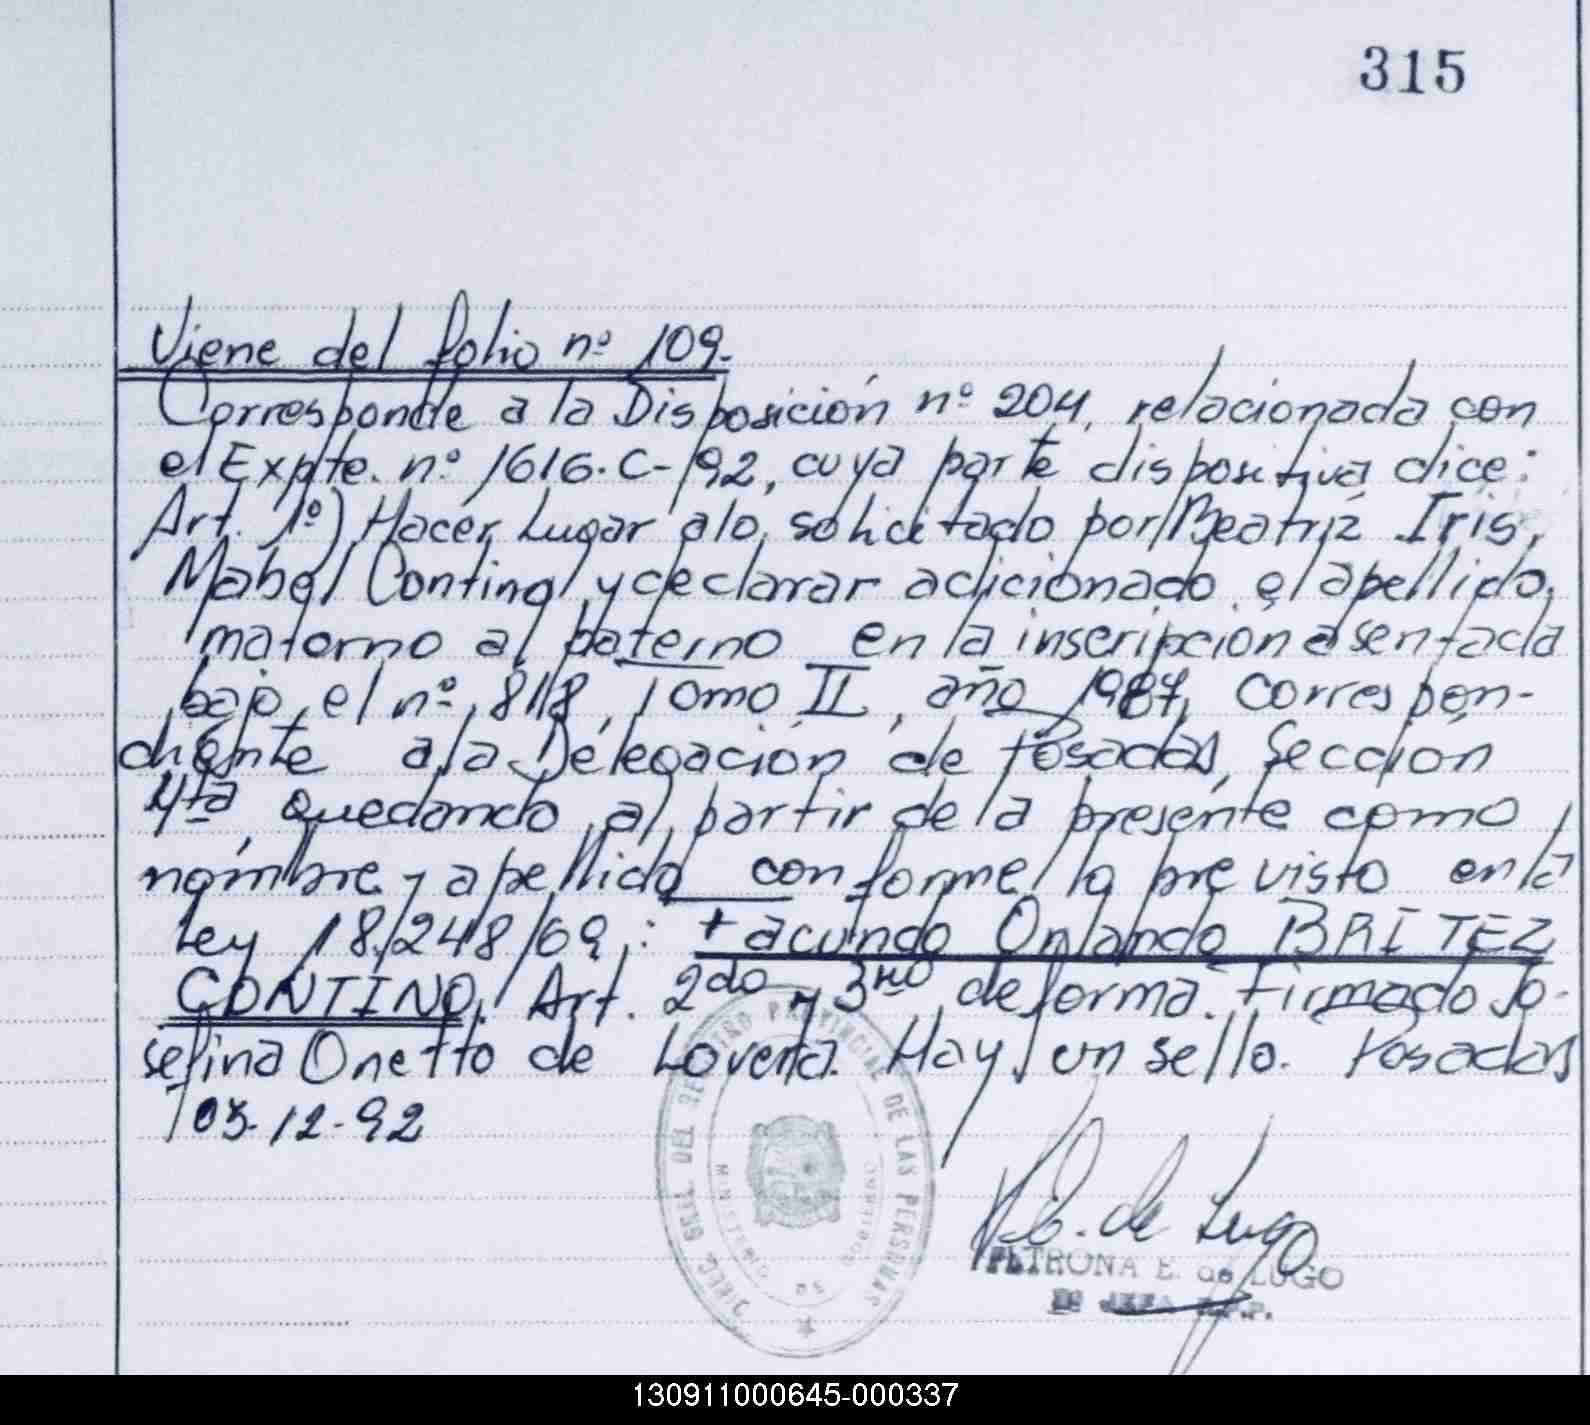 315
Viene del folio nº 109.
Corresponde a la Disposición nº 204, relacionada con
el Expte. nº 1616-C-92, cuya parte dispositiva dice:
Art. 1º) Hacer Lugar a lo solicitado por Beatriz Iris
Mabel Contino, y declarar adicionado el apellido
materno al paterno en la inscripción asentada
bajo el nº 818, Tomo II, año 1987, correspon-
diente a la Delegación de Posadas, Sección
4ta, quedando al partir de la presente como
nombre y apellido conforme lo previsto en la
Ley 18.248/69,: Facundo Orlando BRITEZ
CONTINO. Art. 2do y 3ro de forma. Firmado Jo-
sefina Onetto de Lovera. Hay un sello. Posadas
03-12-92
DIREC. GRAL. DEL REGISTRO PROVINCIAL DE LAS PERSONAS
MINISTERIO DE GOBIERNO
P. E. de Lugo
PETRONA E. de LUGO
JEFA R.P.P.
130911000645-000337